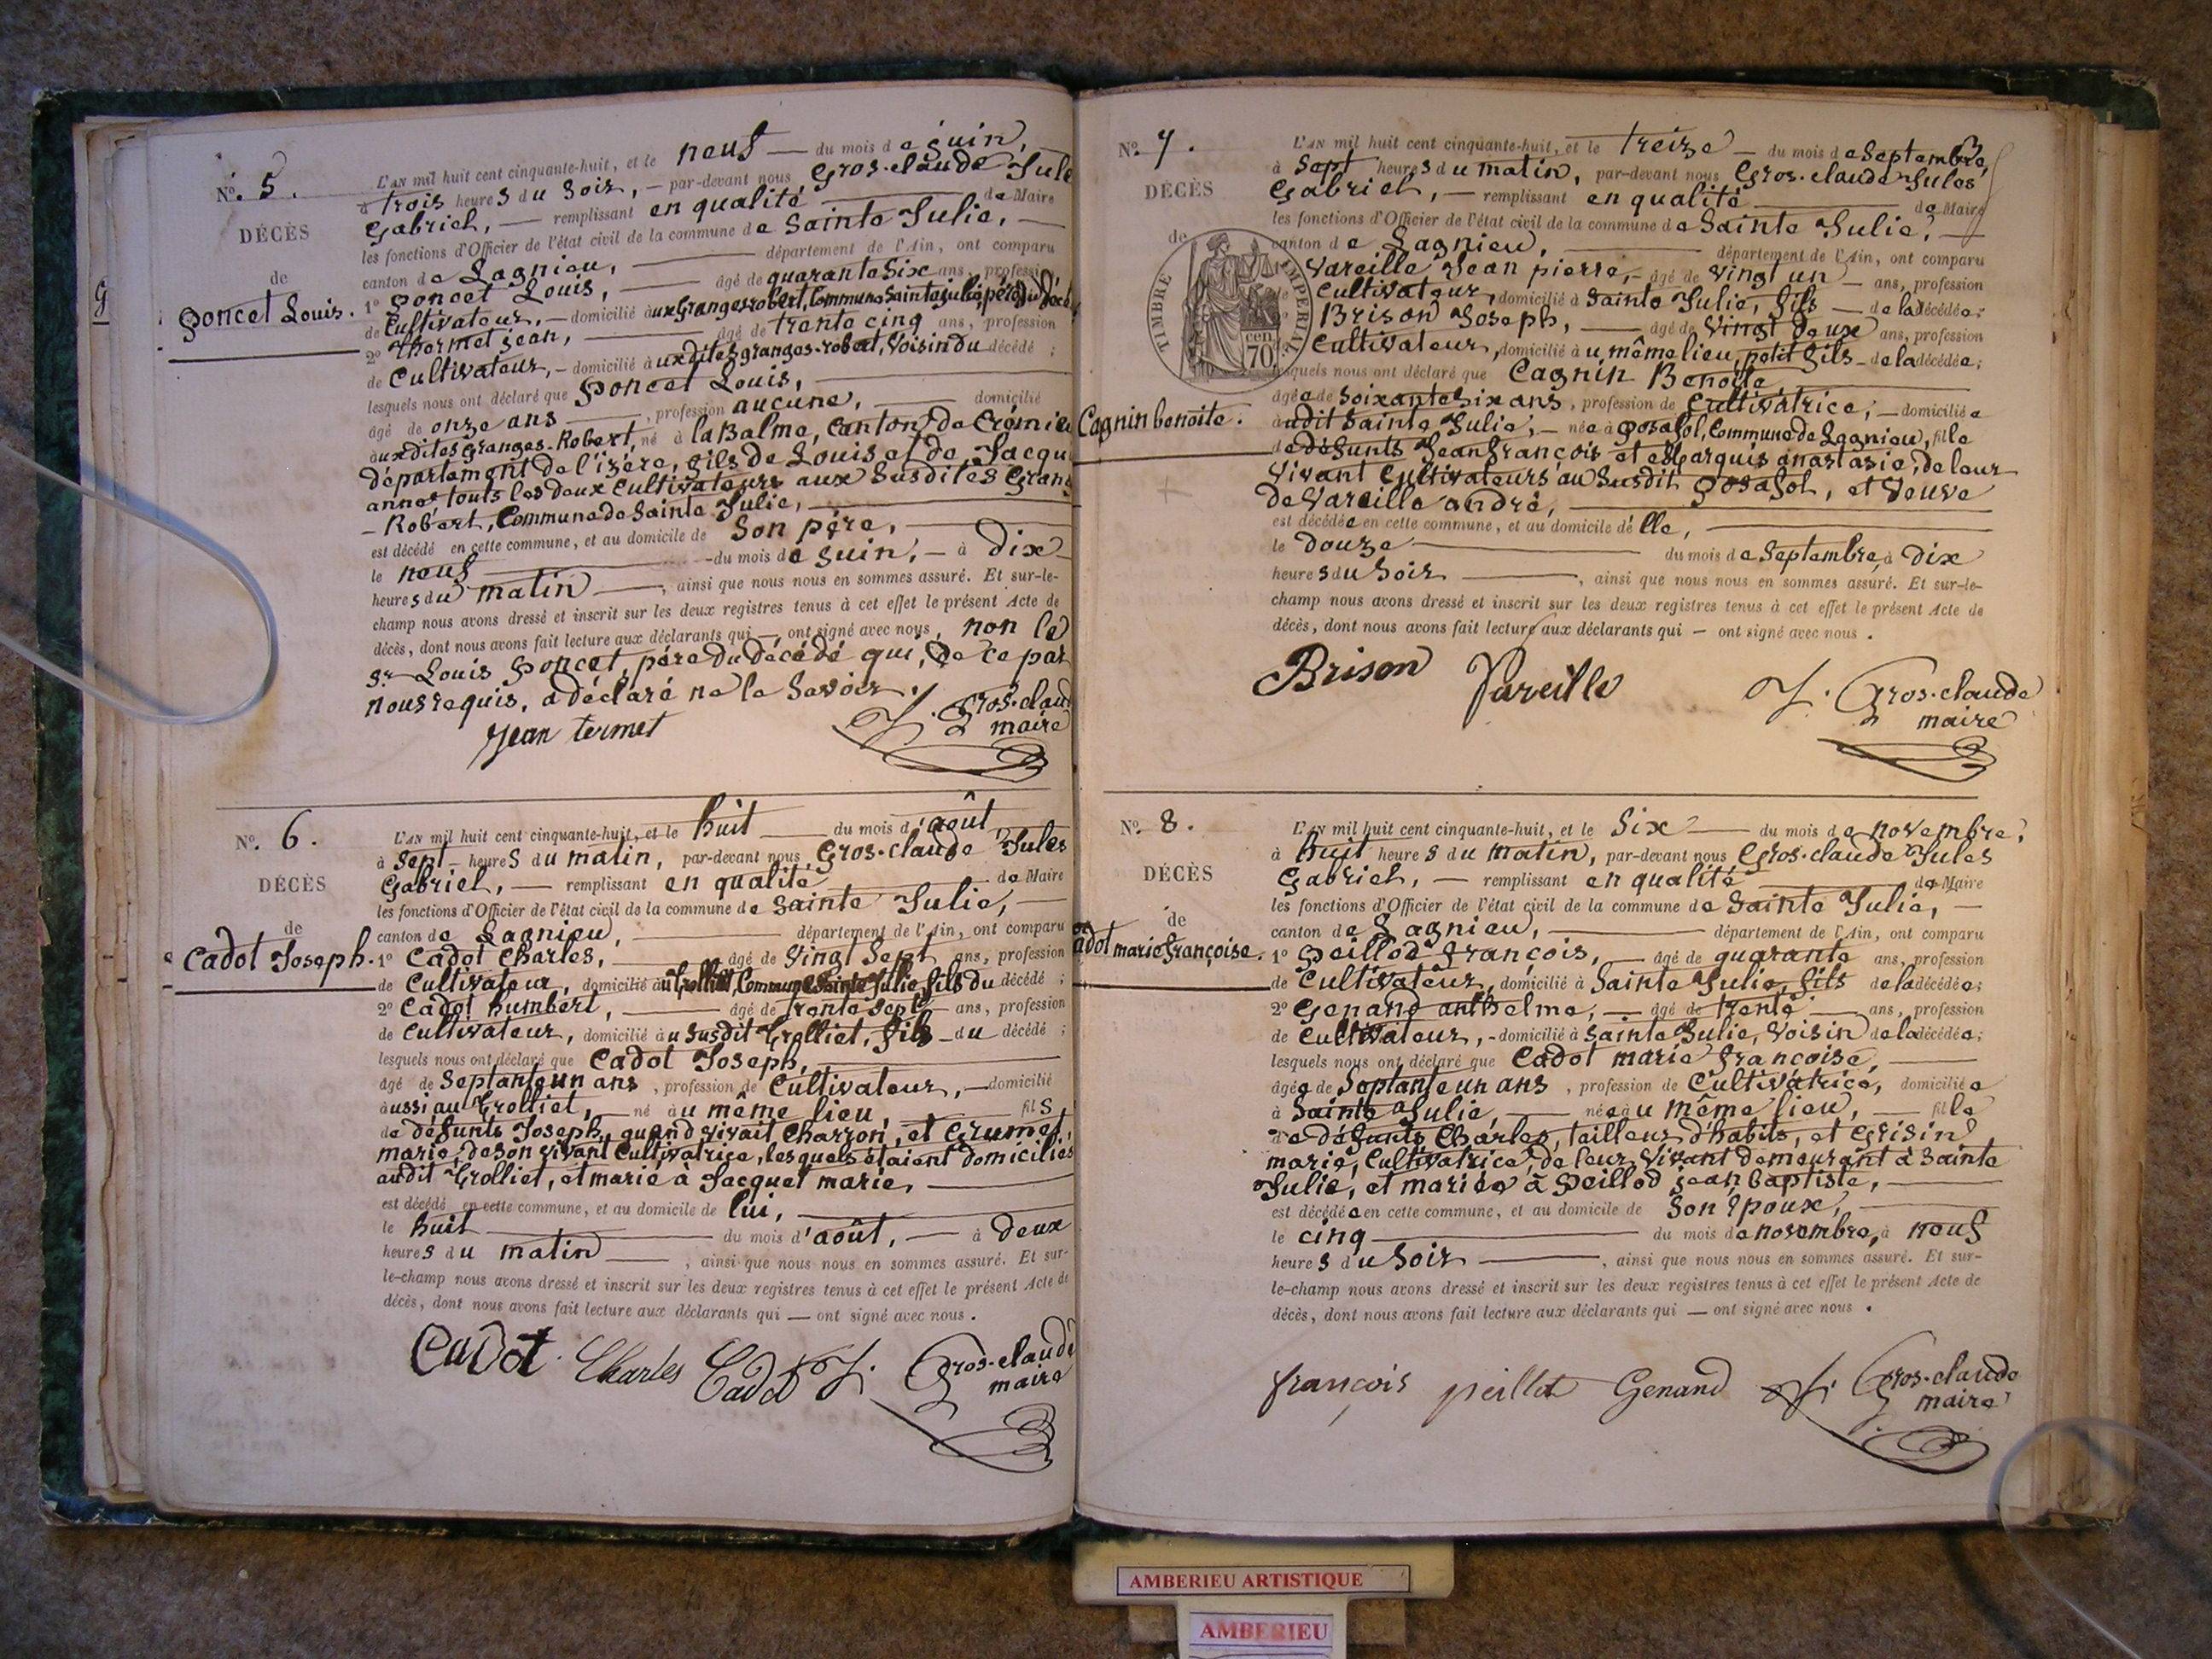 N.o 5.
DÉCÈS
de
Poncet Louis.
L'AN mil huit cent cinquante-huit, et le neuf — du mois de juin,
à trois heures du soir, — par-devant nous Gros-claude Jule
Gabriel, — remplissant en qualité — de Maire
les fonctions d'Officier de l'état civil de la commune de Sainte Julie, —
canton de Lagnieu, — département de l'Ain, ont comparu
1° Poncet Louis, — âgé de quarante six ans, profession
de Cultivateur, — domicilié aux Granges robert, Commune Sainte julie, père du décédé
2° Thermet jean, — âgé de trente cinq ans, profession
de Cultivateur, — domicilié aux dites granges-robert, Voisin du décédé ;
lesquels nous ont déclaré que Poncet Louis, —
âgé de onze ans —, profession aucune, — domicilié
aux dites Granges-Robert, né à la Balme, Canton de Crémieu
département de l'izère, fils de Louis et de Jacqu
anne, touts les deux Cultivateurs aux Susdites Grang
- Robert, Commune de Sainte Julie, —
est décédé en cette commune, et au domicile de Son père, —
le neuf — du mois de juin, — à dix
heures du matin —, ainsi que nous nous en sommes assuré. Et sur-le-
champ nous avons dressé et inscrit sur les deux registres tenus à cet effet le présent Acte de
décès, dont nous avons fait lecture aux déclarants qui — ont signé avec nous, non le
Sr Louis Poncet, père du décédé qui, de ce par
nous requis, a déclaré ne le Savoir.
Jean termet J. Gros-claud
maire
N.o 6.
DÉCÈS
de
Cadot Joseph.
L'AN mil huit cent cinquante-huit, et le huit — du mois d'août
à Sept — heures du matin, par-devant nous Gros-claude Jules
Gabriel, — remplissant en qualité — de Maire
les fonctions d'Officier de l'état civil de la commune de Sainte Julie, —
canton de Lagnieu, — département de l'Ain, ont comparu
1° Cadot Charles, — âgé de Vingt Sept ans, profession
de Cultivateur, domicilié au Trolliet, Commune Sainte Julie, fils du décédé ;
2° Cadot humbert, — âgé de trente sept — ans, profession
de Cultivateur, domicilié au Susdit Trolliet, fils — du décédé ;
lesquels nous ont déclaré que Cadot Joseph, —
âgé de Septante un ans, profession de Cultivateur, — domicilié
aussi au Trolliet, — né au même lieu, — fils
de défunts Joseph, quand vivait Charron, et Grumet,
marie, de son vivant Cultivatrice, lesquels étaient domiciliés
audit Trolliet, et marié à Jacquet marie, —
est décédé en cette commune, et au domicile de lui, —
le huit — du mois d'août, — à deux
heures du matin —, ainsi que nous nous en sommes assuré. Et sur-
le-champ nous avons dressé et inscrit sur les deux registres tenus à cet effet le présent Acte de
décès, dont nous avons fait lecture aux déclarants qui — ont signé avec nous.
Cadot Charles Cadot J. Gros-claude
maire
N.o 7.
DÉCÈS
de
TIMBRE IMPÉRIAL
cen
70
Cagnin benoîte.
L'AN mil huit cent cinquante-huit, et le treize — du mois de Septembre,
à Sept heures du matin, par-devant nous Gros-claude Jules
Gabriel, — remplissant en qualité — de Maire
les fonctions d'Officier de l'état civil de la commune de Sainte Julie, —
canton de Lagnieu, — département de l'Ain, ont comparu
Vareille Jean pierre, — âgé de Vingt un — ans, profession
Cultivateur, domicilié à Sainte Julie, fils — de la décédée ;
Brison Joseph, — âgé de Vingt deux ans, profession
Cultivateur, domicilié au même lieu, petit fils — de la décédée ;
lesquels nous ont déclaré que Cagnin Benoîte
âgée de Soixante Six ans, profession de Cultivatrice, — domiciliée
audit Sainte Julie, — née à Posafol, Commune de Lagnieu, fille
de défunts Jean françois et Marquis anastasie, de leur
Vivant Cultivateurs au Susdit Posafol, et Veuve
de Vareille andré, —
est décédée en cette commune, et au domicile d'elle, —
le douze — du mois de Septembre, à dix
heures du Soir —, ainsi que nous nous en sommes assuré. Et sur-le-
champ nous avons dressé et inscrit sur les deux registres tenus à cet effet le présent Acte de
décès, dont nous avons fait lecture aux déclarants qui — ont signé avec nous.
Brison Vareille J. Gros-claude
maire
N.o 8.
DÉCÈS
de
adot marie françoise.
L'AN mil huit cent cinquante-huit, et le Six — du mois de novembre,
à huit heures du matin, par-devant nous Gros-claude Jules
Gabriel, — remplissant en qualité — de Maire
les fonctions d'Officier de l'état civil de la commune de Sainte Julie, —
canton de Lagnieu, — département de l'Ain, ont comparu
1° Peillod françois, — âgé de quarante ans, profession
de Cultivateur, domicilié à Sainte Julie, fils de la décédée ;
2° Genand anthelme, — âgé de trente — ans, profession
de Cultivateur, - domicilié à Sainte Julie, Voisin de la décédée ;
lesquels nous ont déclaré que Cadot marie françoise, —
âgée de Septante un ans, profession de Cultivatrice, domiciliée
à Sainte Julie, — née au même lieu, — fille
de défunts Charles, tailleur d'habits, et Grisin
marie, Cultivatrice, de leur Vivant demeurant à Sainte
Julie, et mariée à Peillod jean baptiste, —
est décédée en cette commune, et au domicile de Son époux, —
le cinq — du mois de novembre, à neuf
heures du Soir —, ainsi que nous nous en sommes assuré. Et sur-
le-champ nous avons dressé et inscrit sur les deux registres tenus à cet effet le présent Acte de
décès, dont nous avons fait lecture aux déclarants qui — ont signé avec nous.
françois peillod Genand J. Gros-claude
maire
AMBERIEU ARTISTIQUE
AMBERIEU